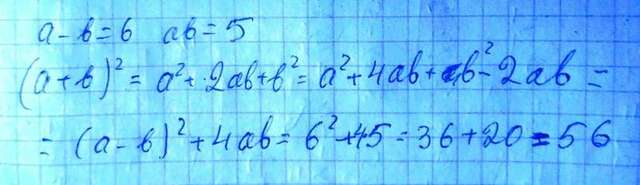 a-b=6 ab=5
(a+b)² = a²+2ab+b² = a²+4ab+b²-2ab =
= (a-b)²+4ab = 6²+45 = 36+20 = 56